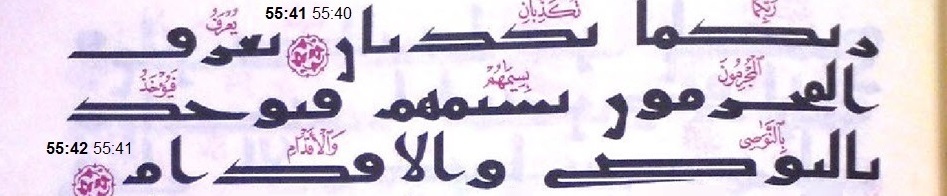 55:41 55:40
رَبِّكُمَا تُكَذِّبَانِ يُعْرَفُ
ربكما تكدبان يعرف
ٱلْمُجْرِمُونَ بِسِيمَٰهُمْ فَيُؤْخَذُ
المجرمون بسيمهم فيوخد
55:42 55:41
بِٱلنَّوَٰصِى وَٱلْأَقْدَامِ
بالنوصى والاقدام